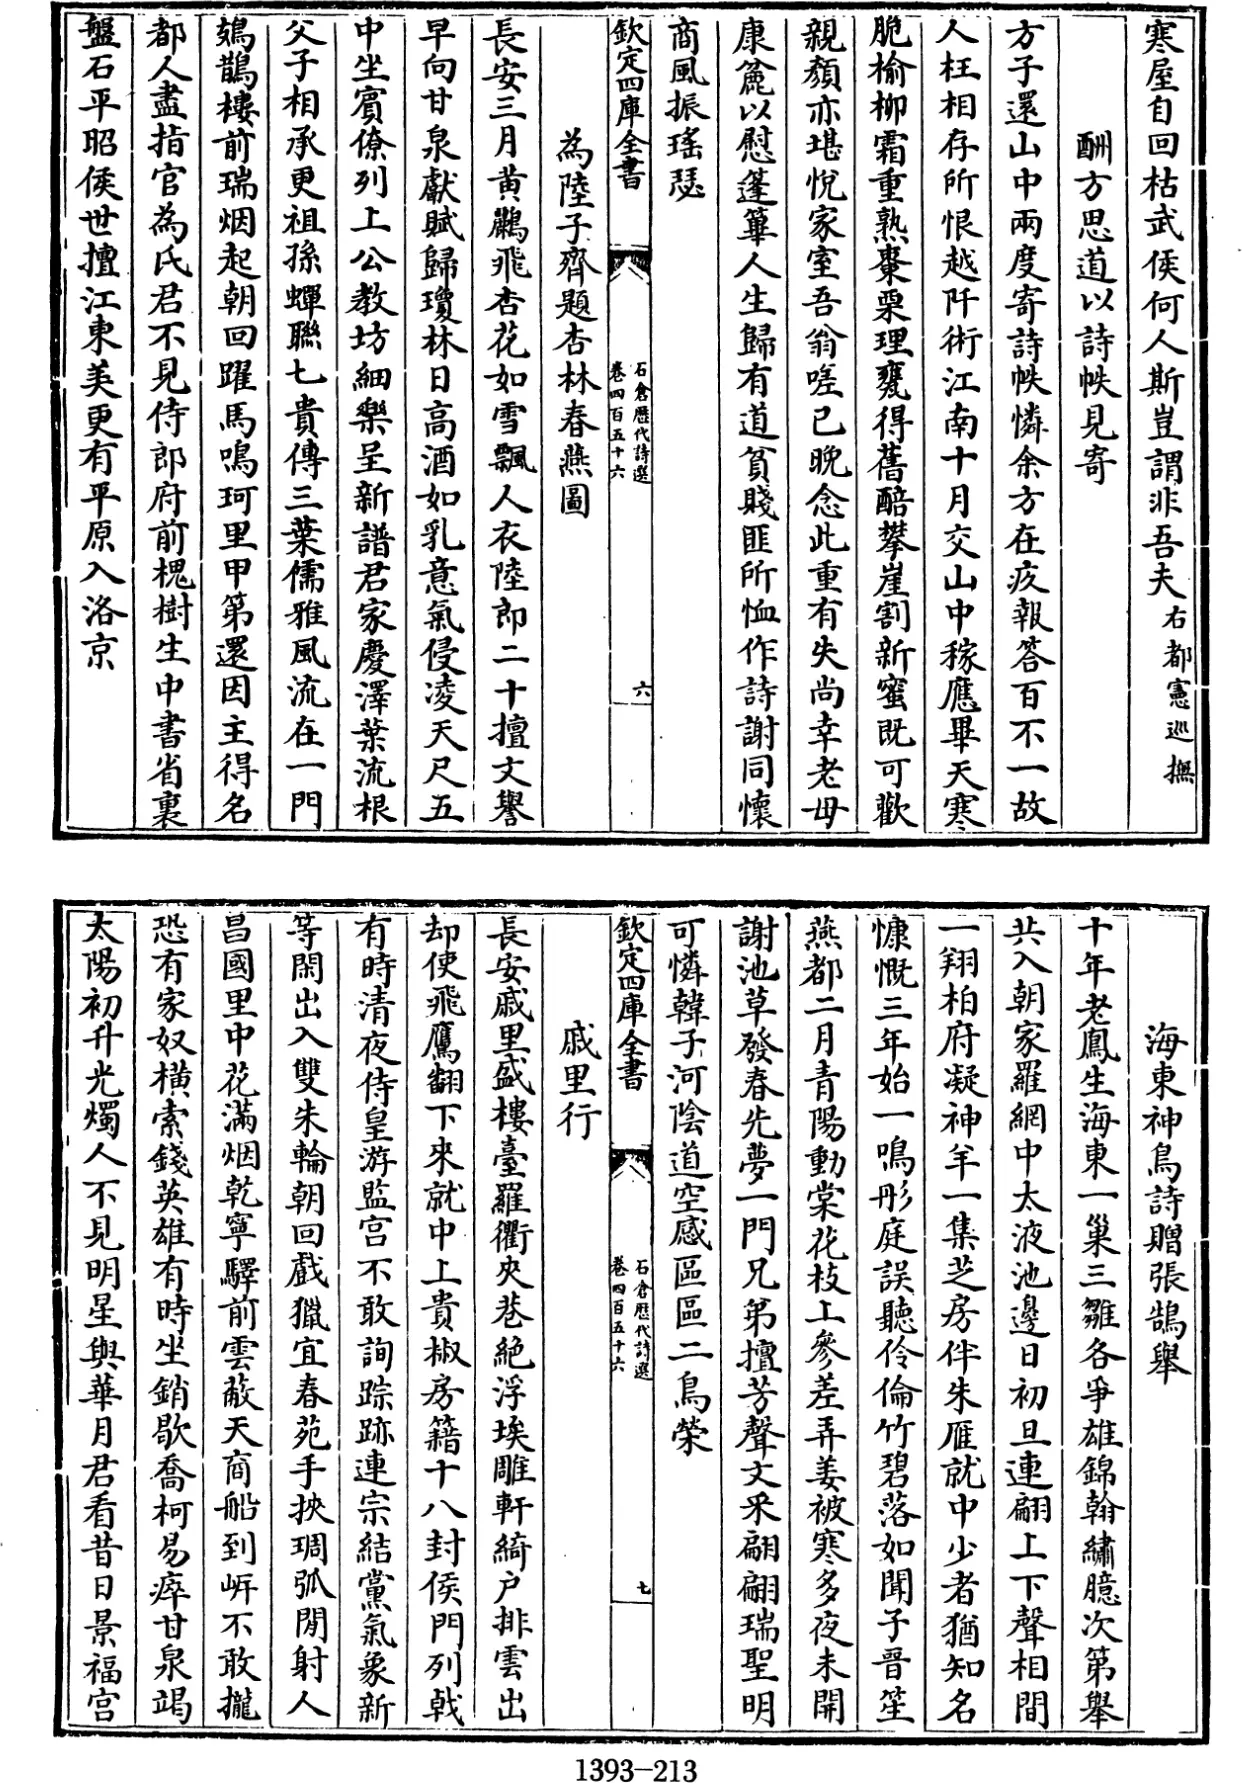 寒屋自回枯武侯何人斯豈謂非吾夫右都憲巡撫
酬方思道以詩帙見寄
方子還山中兩度寄詩帙憐余方在疚報答百不一故
人枉相存所恨越阡術江南十月交山中稼應畢天寒
脆榆柳霜重熟棗栗理甕得舊醅攀崖割新蜜既可歡
親顏亦堪悅家室吾翁嗟已晚念此重有失尚幸老母
康麄以慰蓬蓽人生歸有道貧賤匪所恤作詩謝同懷
商風振瑤瑟
欽定四庫全書
石倉歷代詩選
卷四百五十六
六
為陸子齊題杏林春燕圖
長安三月黃鸝飛杏花如雪飄人衣陸郎二十擅文譽
早向甘泉獻賦歸瓊林日高酒如乳意氣侵凌天尺五
中坐賓僚列上公教坊細樂呈新譜君家慶澤葉流根
父子相承更祖孫蟬聯七貴傳三葉儒雅風流在一門
鳷鵲樓前瑞烟起朝回躍馬鳴珂里甲第還因主得名
都人盡指官為氏君不見侍郎府前槐樹生中書省裏
盤石平昭侯世擅江東美更有平原入洛京
海東神鳥詩贈張鵠舉
十年老鳳生海東一巢三雛各爭雄錦翰繡臆次第舉
共入朝家羅網中太液池邊日初旦連翩上下聲相間
一翔柏府凝神羊一集芝房伴朱雁就中少者猶知名
慷慨三年始一鳴彤庭誤聽伶倫竹碧落如聞子晉笙
燕都二月青陽動棠花枝上參差弄姜被寒多夜未開
謝池草發春先夢一門兄弟擅芳聲文采翩翩瑞聖明
可憐韓子河陰道空感區區二鳥榮
欽定四庫全書
石倉歷代詩選
卷四百五十六
七
戚里行
長安戚里盛樓臺羅衢夾巷絕浮埃雕軒綺户排雲出
却使飛鷹翻下來就中上貴椒房籍十八封侯門列戟
有時清夜侍皇游監宫不敢詢踪跡連宗結黨氣象新
等閑出入雙朱輪朝回戲獵宜春苑手挾琱弧閒射人
昌國里中花滿烟乾寧驛前雲蔽天商船到岍不敢攏
恐有家奴橫索錢英雄有時坐銷歇喬柯易瘁甘泉竭
太陽初升光燭人不見明星與華月君看昔日景福宫
1393-213